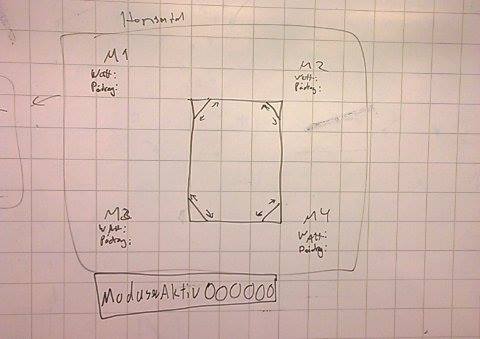 Horisontal
M1
Watt:
Pådrag:
M2
Watt:
Pådrag:
M3
Watt:
Pådrag:
M4
Watt:
Pådrag:
Modus Aktiv